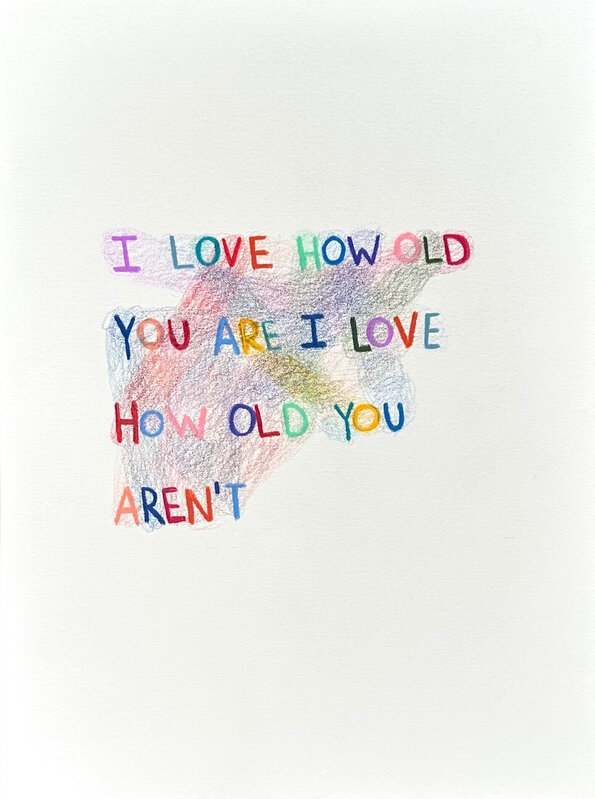 I LOVE HOW OLD
YOU ARE I LOVE
HOW OLD YOU
AREN'T